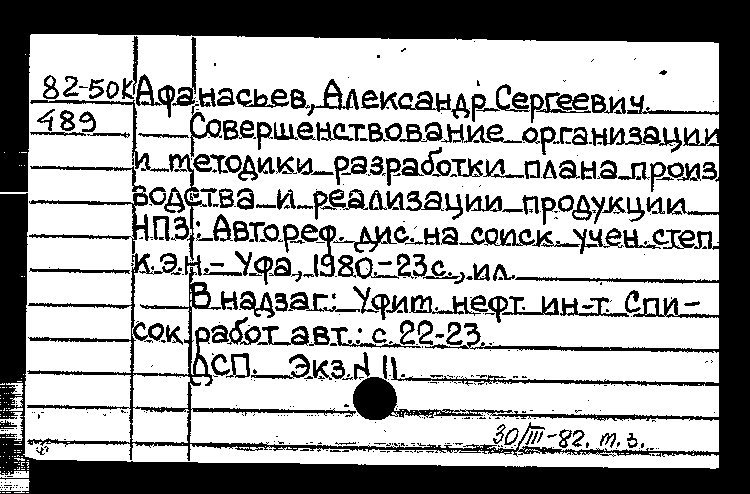 82-50К Афанасьев, Александр Сергеевич.
489 Совершенствование организации
и методики разработки плана произ
водства и реализации продукции
НПЗ: Автореф. дис. на соиск. учен. степ
к.э.н. – Уфа, 1980. – 23 с., ил.
В надзаг.: Уфим. нефт. ин-т. Спи-
сок работ авт.: с. 22-23.
ДСП. Экз. № 11.
30/III-82. т. з.